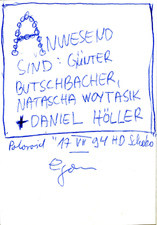 ANWESEND
SIND: GÜNTER
BUTSCHBACHER,
NATASCHA WOYTASIK
+ DANIEL HÖLLER
Polaroid "17 VII 94 HD